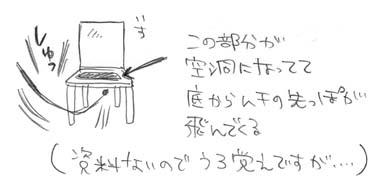 いす
しゅっ
この部分が
空洞になってて
底からムチの先っぽが
飛んでくる
(資料ないのでうろ覚えですが‥‥)